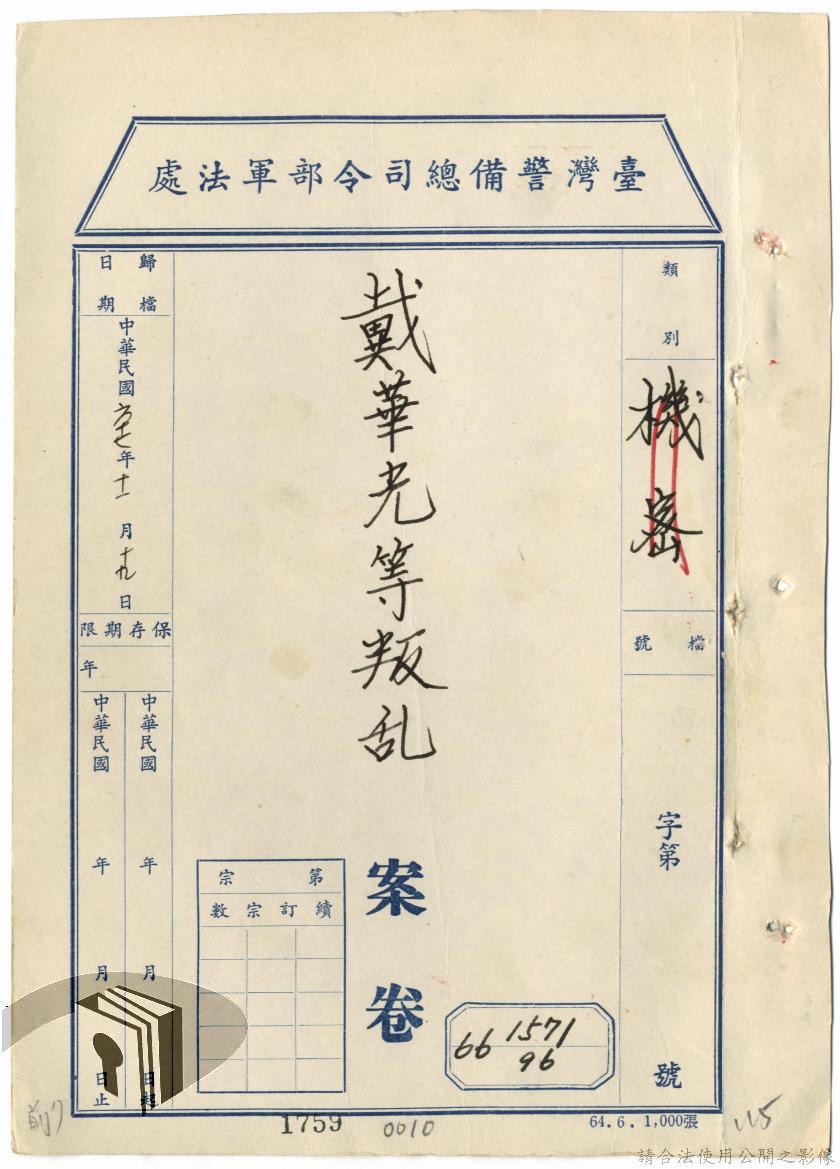 臺灣警備總司令部軍法處
類別
機密
檔號
字第
號
戴華光等叛乱
案卷
66 1571
96
第
宗
續訂宗數
歸檔日期
中華民國六七年十一月十九日
保存期限
年
中華民國 年 月 日起
中華民國 年 月 日止
1759
0010
64.6. 1,000張
請合法使用公開之影像